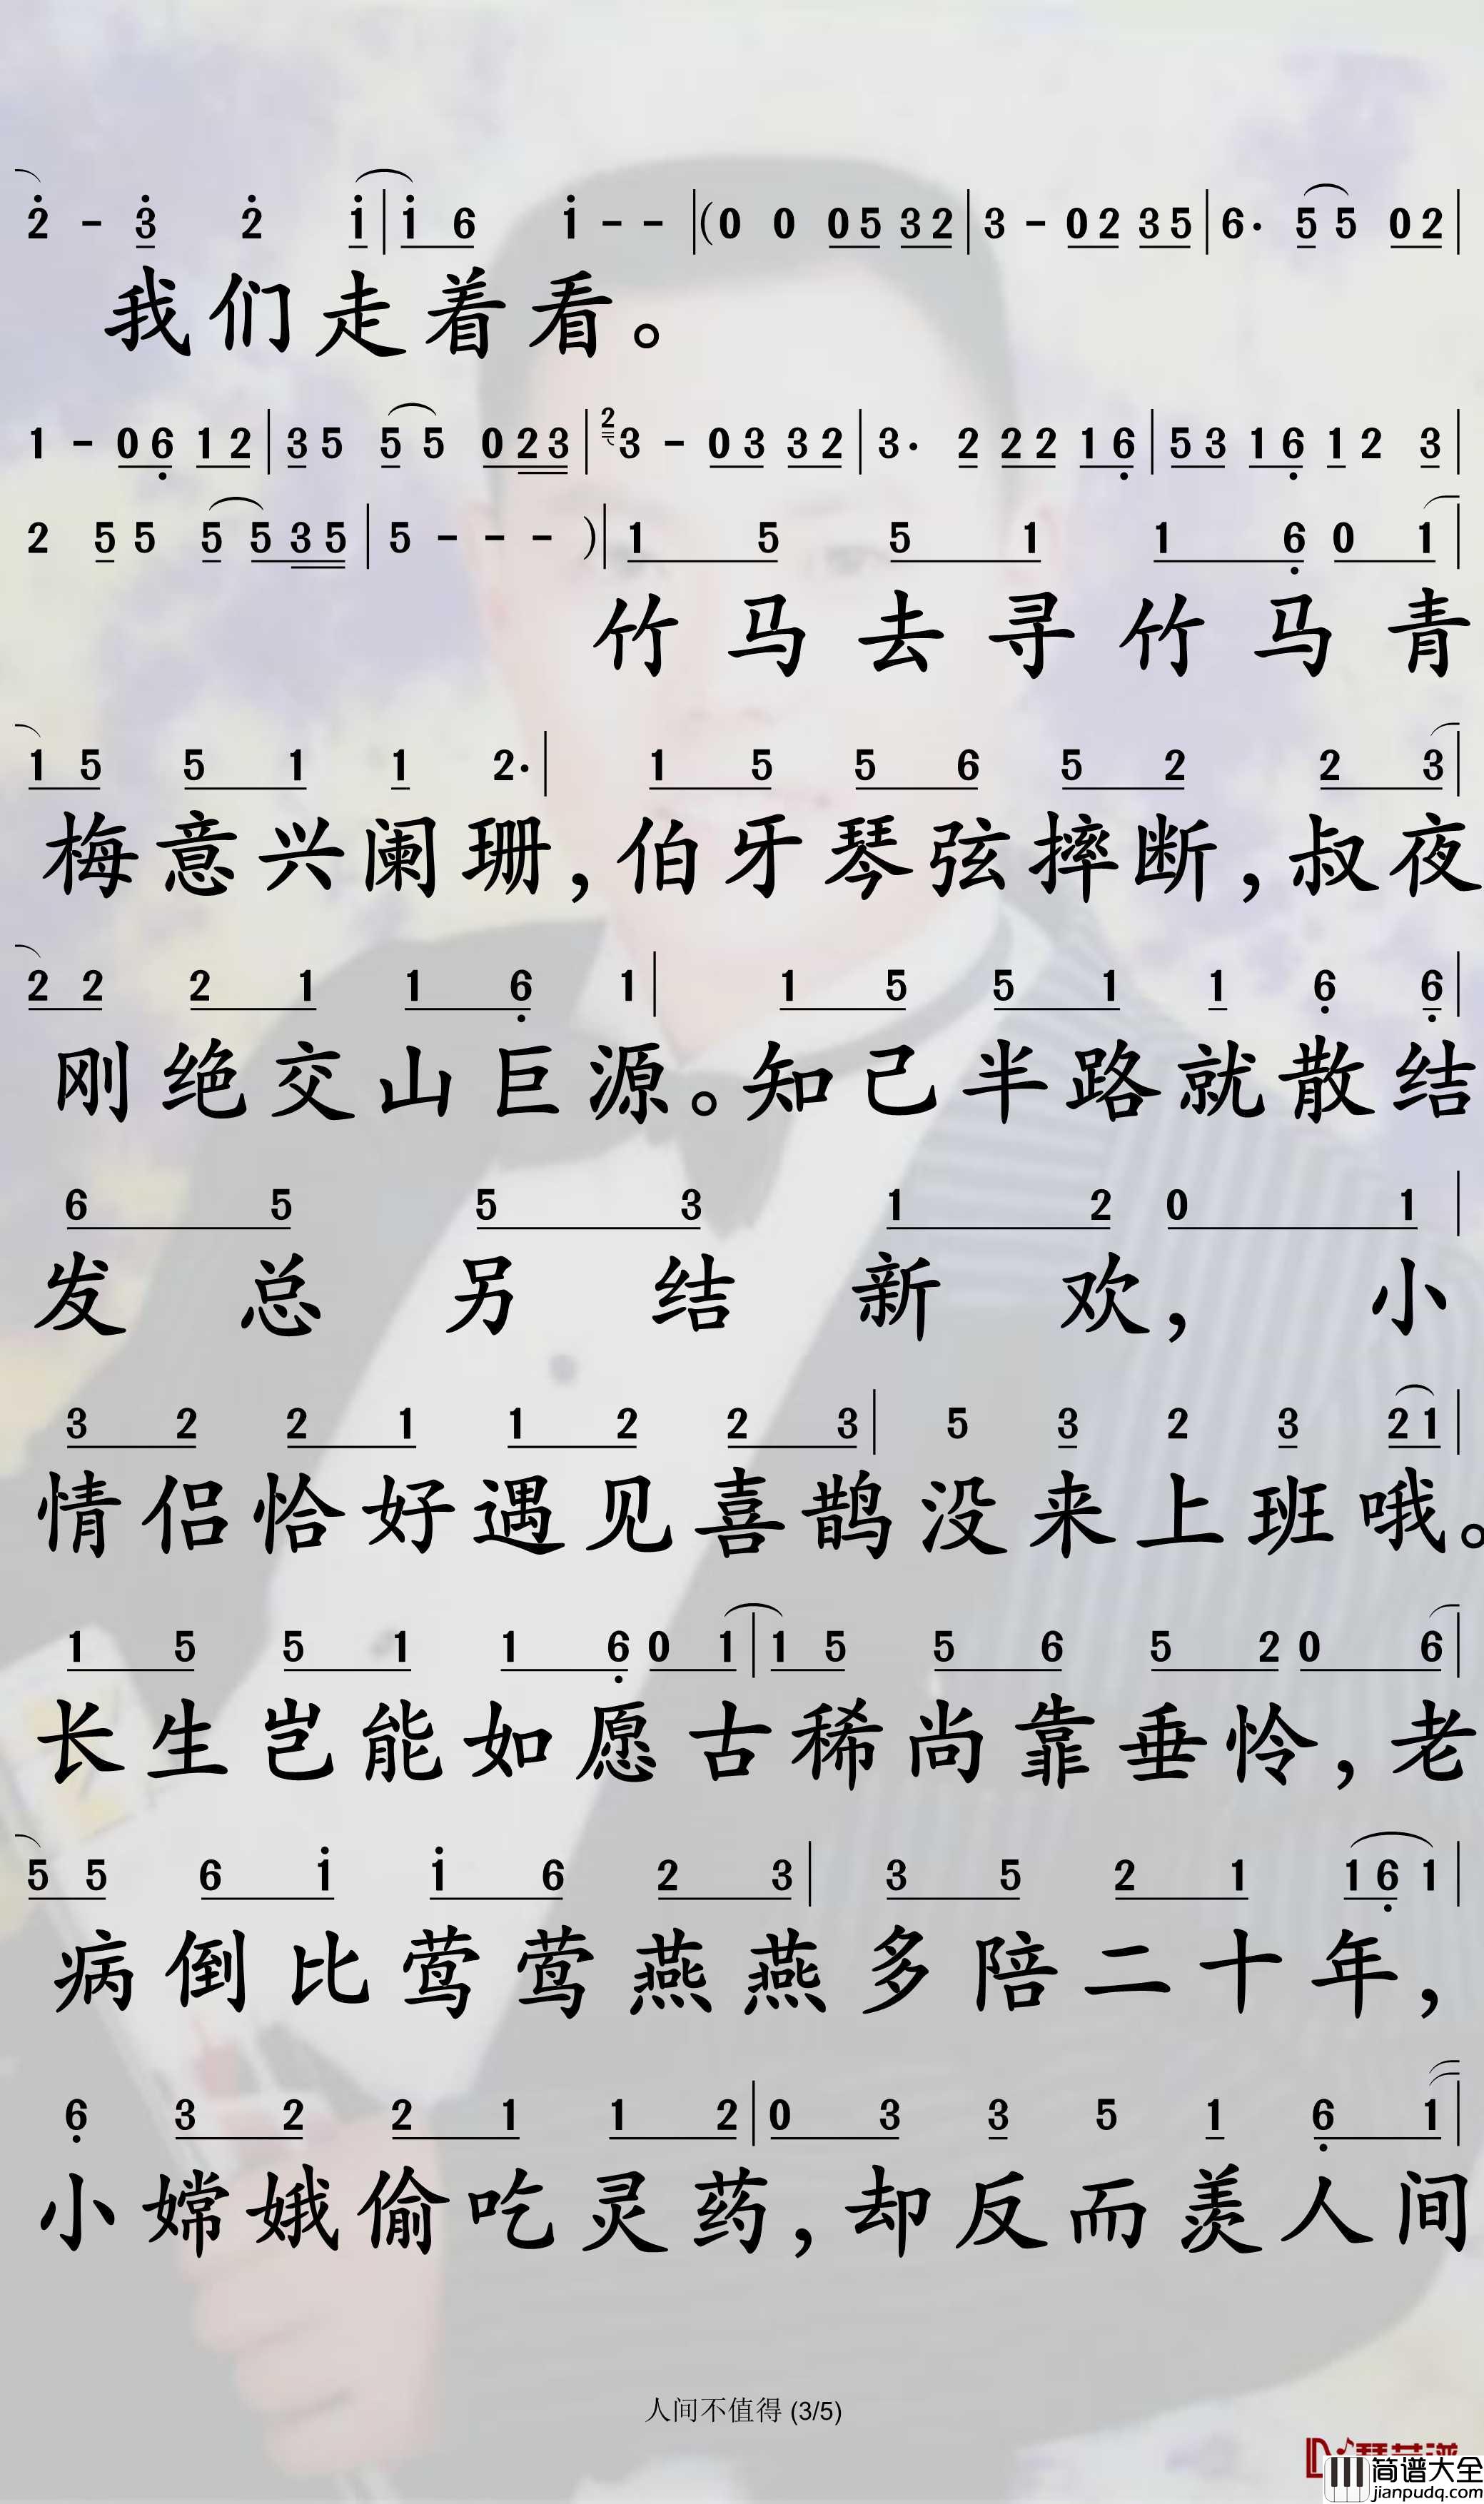 2 - 3 2 1 | 1 6 1 - - | (0 0 0 5 3 2 | 3 - 0 2 3 5 | 6· 5 5 0 2 |
我们走着看。
1 - 0 6 1 2 | 3 5 5 5 0 2 3 | 2 3 - 0 3 3 2 | 3· 2 2 2 1 6 | 5 3 1 6 1 2 3 |
2 5 5 5 5 3 5 | 5 - - - ) | 1 5 5 1 1 6 0 1 |
竹马去寻竹马青
1 5 5 1 1 2· | 1 5 5 6 5 2 2 3 |
梅意兴阑珊，伯牙琴弦摔断，叔夜
2 2 2 1 1 6 1 | 1 5 5 1 1 6 6 |
刚绝交山巨源。知己半路就散结
6 5 5 3 1 2 0 1 |
发总另结新欢，小
3 2 2 1 1 2 2 3 | 5 3 2 3 2 1 |
情侣恰好遇见喜鹊没来上班哦。
1 5 5 1 1 6 0 1 | 1 5 5 6 5 2 0 6 |
长生岂能如愿古稀尚靠垂怜，老
5 5 6 1 1 6 2 3 | 3 5 2 1 1 6 1 |
病倒比莺莺燕燕多陪二十年，
6 3 2 2 1 1 2 | 0 3 3 5 1 6 1 |
小嫦娥偷吃灵药，却反而羡人间
人间不值得 (3/5)
简谱大全
jianpudq.com